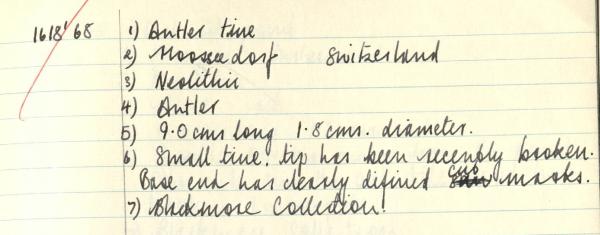 1618'68 1) Antler tine
2) Moosseedorf Switzerland
3) Neolithic
4) Antler
5) 9.0 cms long 1.8 cms. diameter.
6) Small tine. tip has been recently broken.
Base end has clearly defined cut marks.
7) Blackmore Collection.